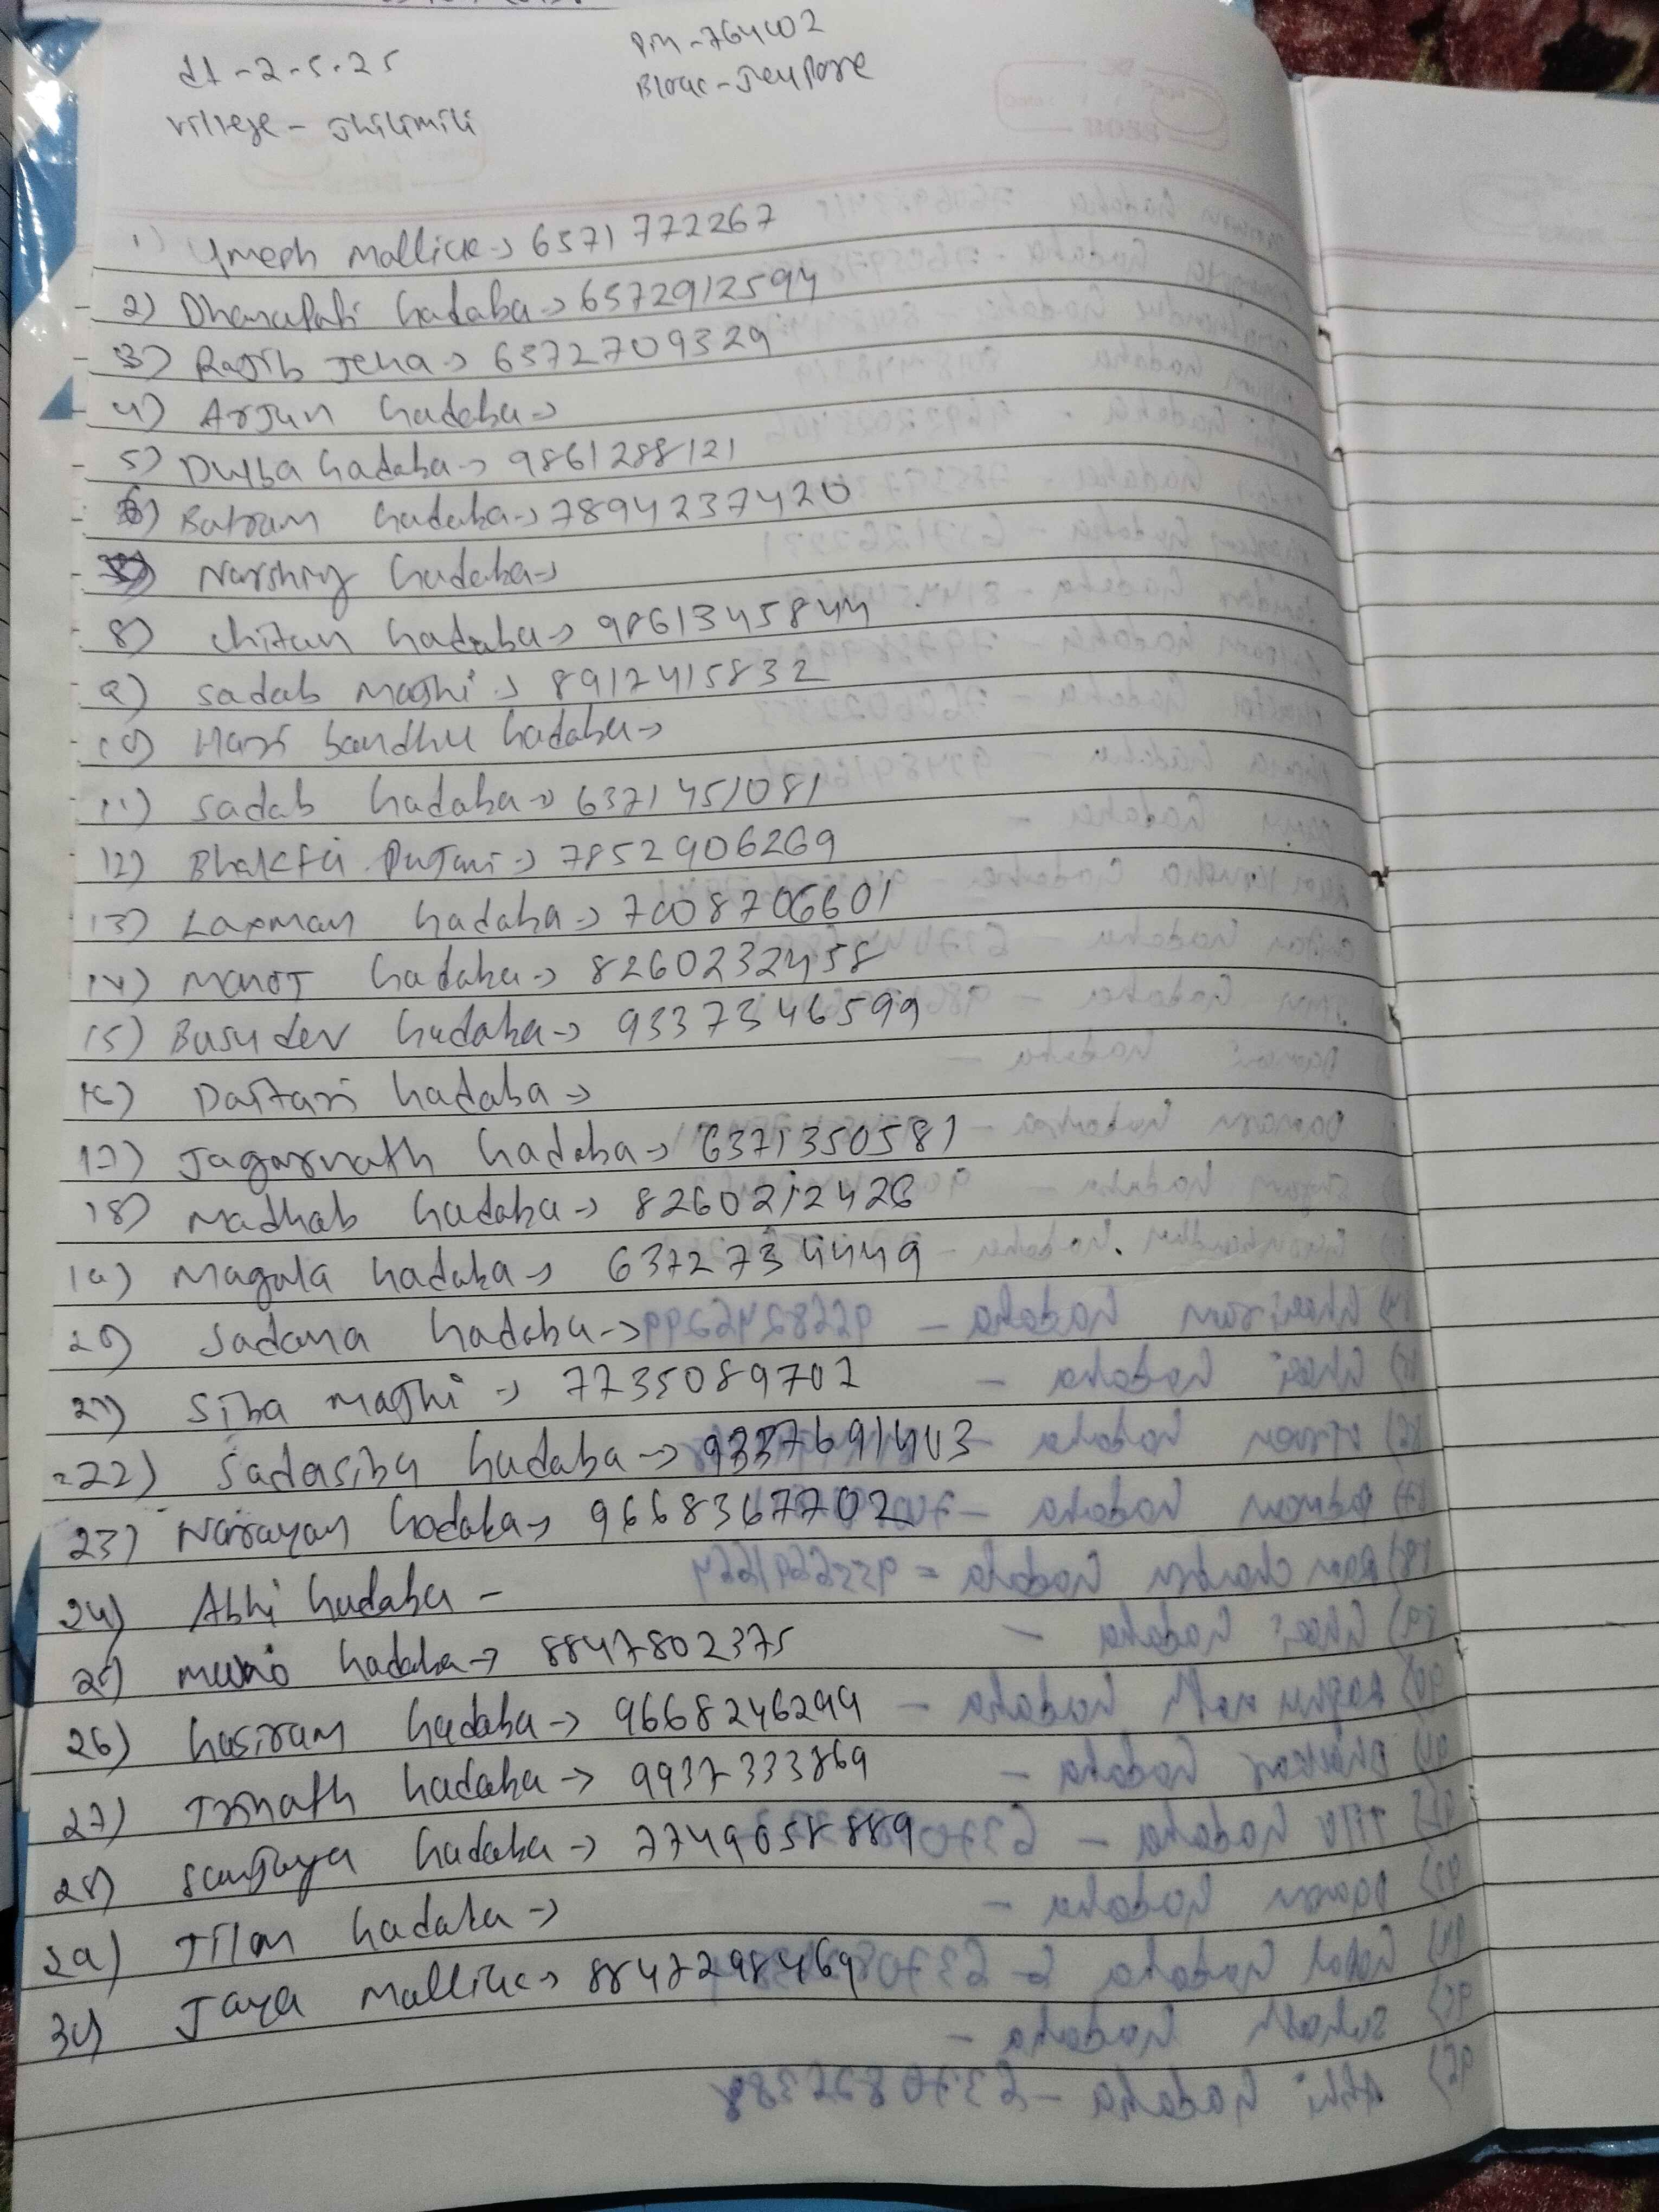 dt - 2-5-25
Pin - 764002
village - Jhilimili
Block - Jeypore
1) Umesh Mallick → 6371772267
2) Dhanapati Gadaba → 6372912594
3) Rajib Jena → 6372709329
4) Arjun Gadaba →
5) Dulba Gadaba → 9861288121
6) Balram Gadaba → 7894237420
Narshing Gadaba →
8) Chitan Gadaba → 9861345844
9) Sadab Majhi → 8912415832
10) Hari bandhu Gadaba →
11) Sadab Gadaba → 6371451081
12) Bhakta Pujari → 7852906269
13) Laxman Gadaba → 7008706601
14) Manoj Gadaba → 8260232458
15) Basudev Gadaba → 9337346599
16) Daitari Gadaba →
17) Jagarnath Gadaba → 6371350581
18) Madhab Gadaba → 8260212426
19) Magala Gadaba → 6372734449
20) Sadana Gadaba →
21) Siba Majhi → 7735089702
22) Sadasiba Gadaba → 9337691403
23) Narayan Gadaba → 9668367702
24) Abhi Gadaba -
25) Gadaba → 8847802375
26) Gasiram Gadaba → 9668246299
27) Trinath Gadaba → 9937333869
28) Sanjaya Gadaba → 7749058889
29) Gadaba →
30) Jaya Mallick → 8847298469